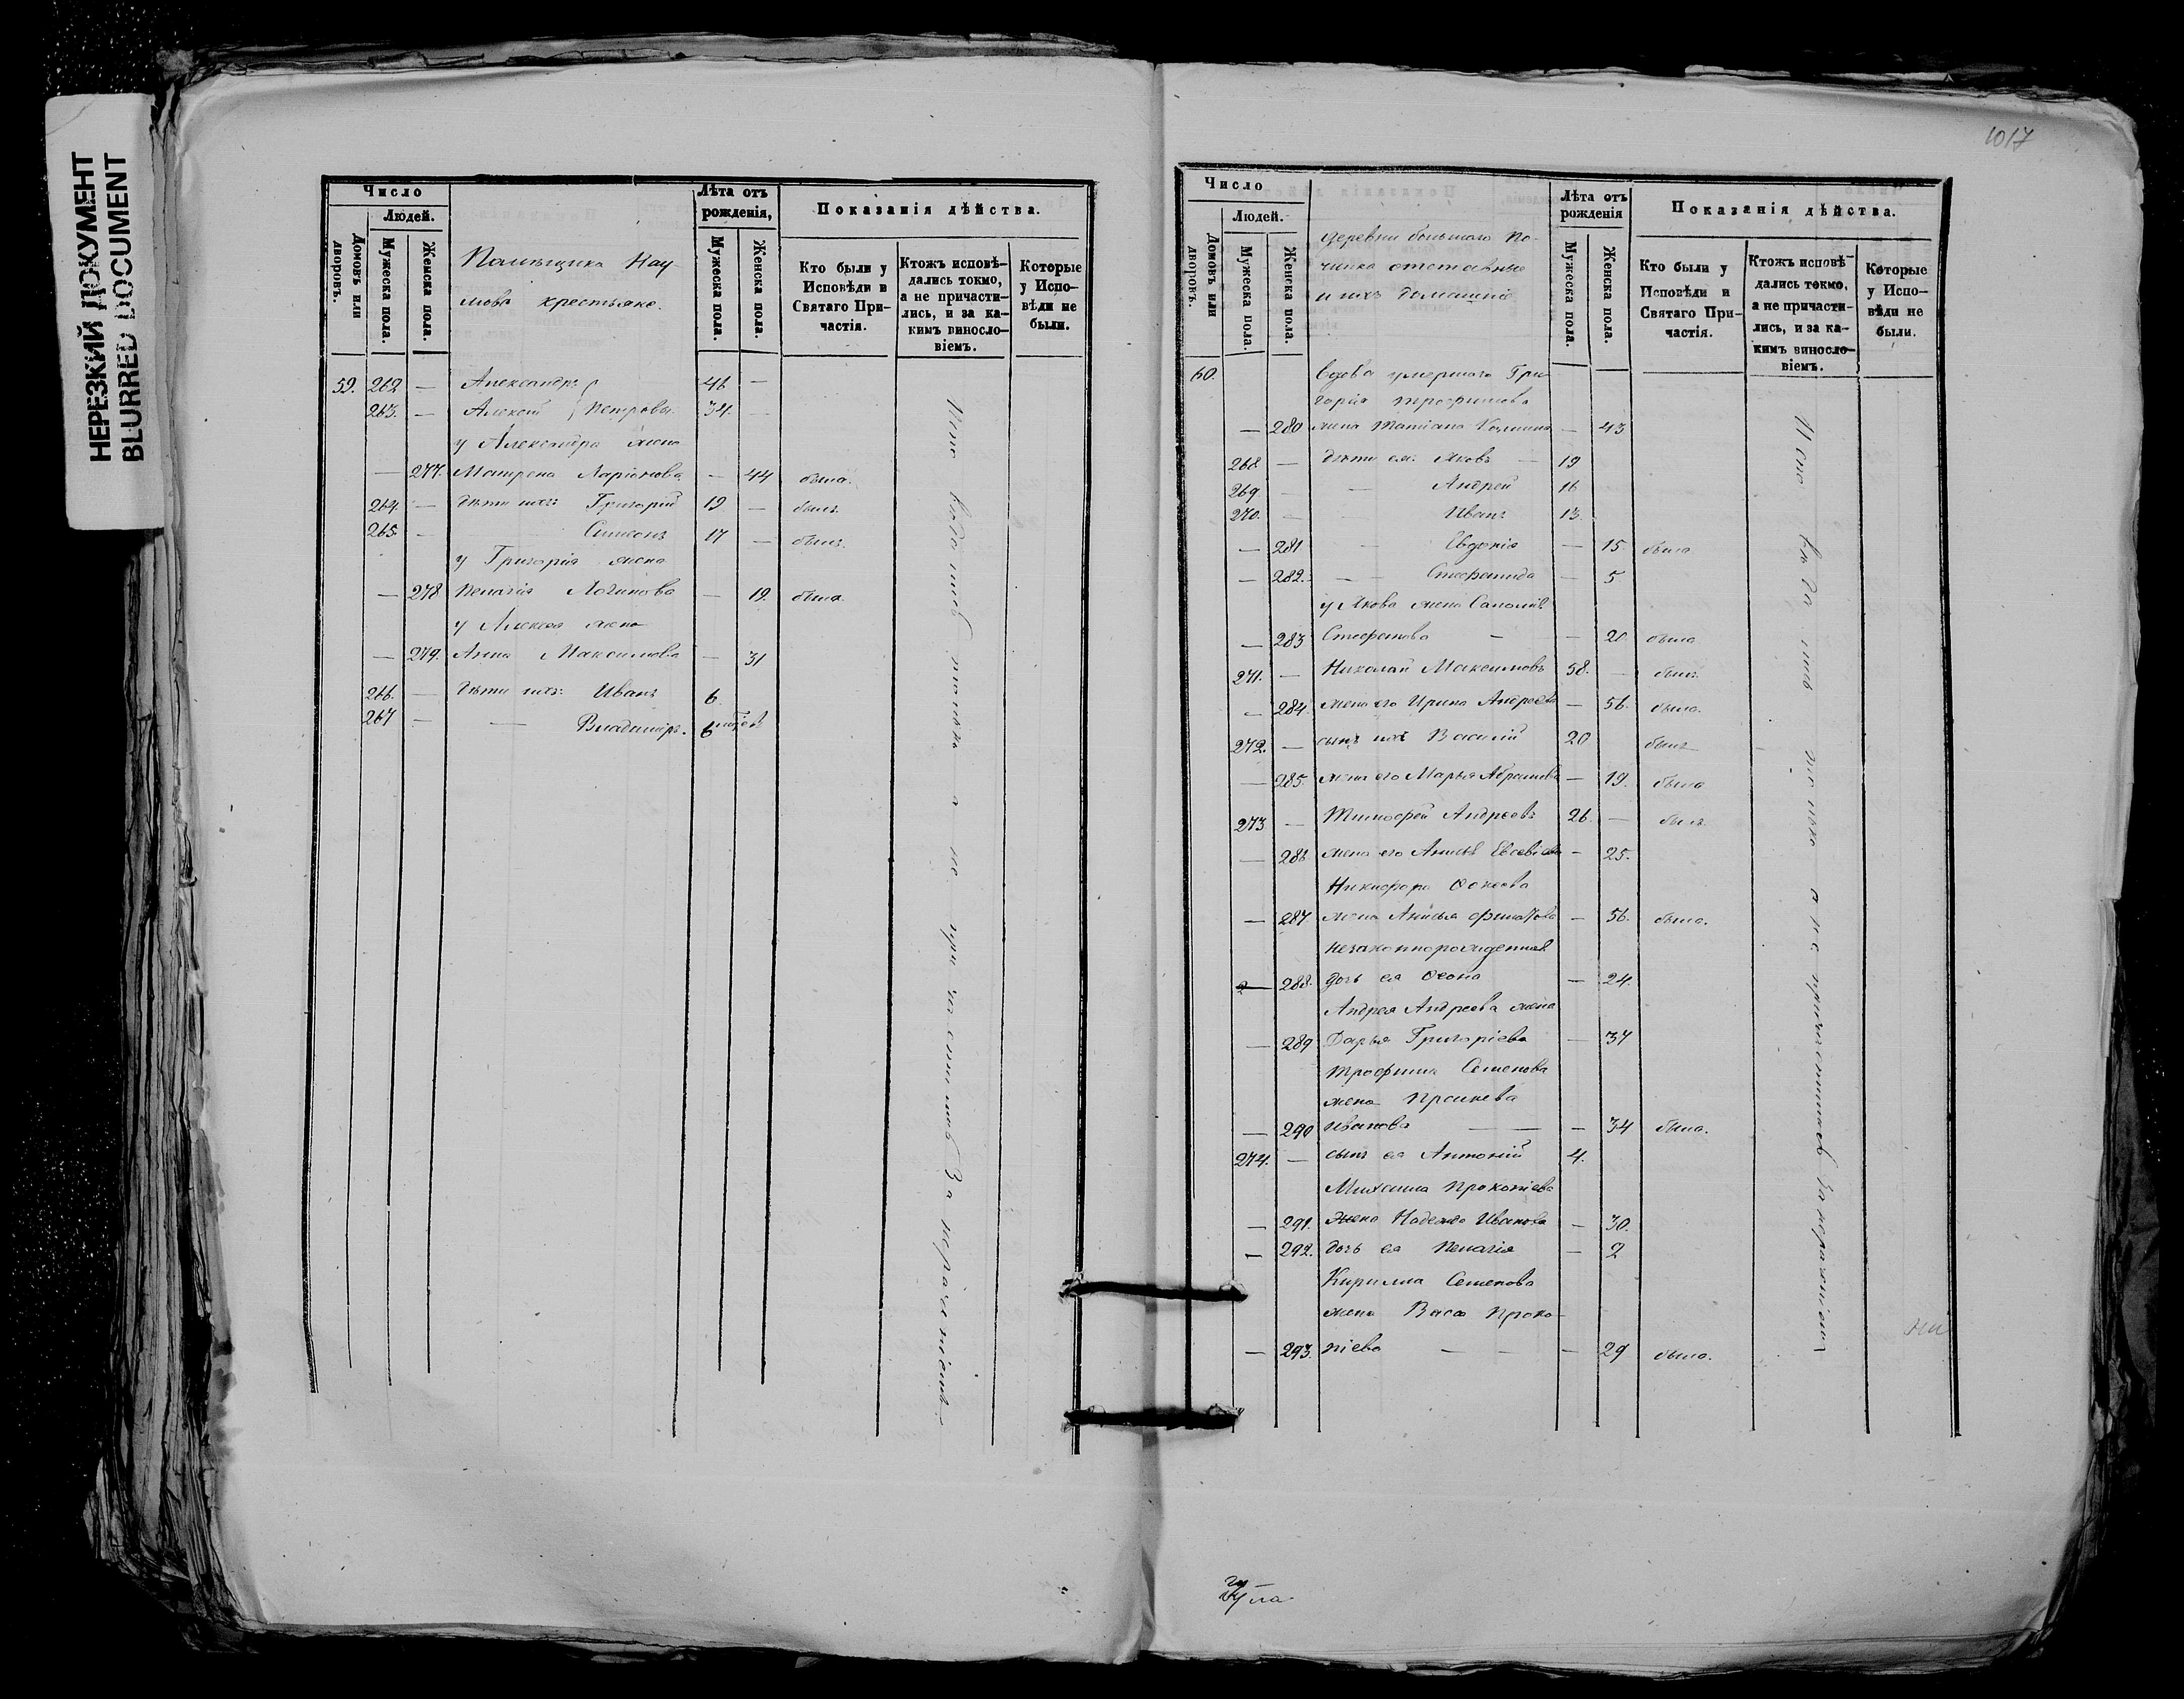 НЕРЕЗКИЙ ДОКУМЕНТ
BLURRED DOCUMENT
Число
Людей.
Домовъ или дворовъ.
Мужеска пола.
Женска пола.
Помѣщика Нау-
мова крестьяне.
Лѣта отъ рожденія,
Мужеска пола.
Женска пола.
Показанія дѣйства.
Кто были у Исповѣди и Святаго Причастія.
Ктожъ исповѣдались токмо, а не причастились, и за какимъ винословіемъ.
Которые у Исповѣди не были.
59. 262. — Александръ 46 —
263. — Алексѣй Петровы 34. —
у Александра жена
— 277. Матрена Ларіонова — 44 была.
264. — дѣти ихъ: Григорій 19 — былъ.
265. — Симеонъ 17 — былъ.
у Григорія жена
— 278 Пелагія Логинова — 19. была
у Алексея жена
— 279. Анна Максимова — 31
266. — дѣти ихъ: Иванъ 6
267 — — Владиміръ. 6
а не причастились За нераченіемъ.
1017
Число
Людей.
Домовъ или дворовъ.
Мужеска пола.
Женска пола.
деревни большаго По-
чинка отставные
и ихъ домашніе
Лѣта отъ рожденія
Мужеска пола.
Женска пола.
Показанія дѣйства.
Кто были у Исповѣди и Святаго Причастія.
Ктожъ исповѣдались токмо, а не причастились, и за какимъ винословіемъ.
Которые у Исповѣди не были.
60. вдова умершаго Гри-
горія Трофимова
— 280 жена Татіана — 43
268 — дѣти ея: Яковъ — 19
269 — — Андрей 16
270. — — Иванъ 13.
— 281 — Евдокія — 15 была
— 282. — — Стефанида — 5
у Якова жена
— 283 Стефанова — — 20 была
271. — Николай Максимовъ 58. — былъ.
— 284 жена его Ирина Андреева — 56. была.
272. — сынъ ихъ Василій 20 былъ
— 285. жена его Марья Абрамова — 19. была
273 — Тимофей Андреевъ 26. — былъ.
— 286 жена его — 25.
Никифора
— 287 жена Анисья — 56. была.
незаконнорожденная
— 288. дочь ея — 24.
Андрея Андреева жена
— 289 Дарья Григоріева — 37
Трофима Семенова
жена
— 290 Иванова — — 34 была.
274. — сынъ ея Антоній 4.
Михаила Прокопіева
— 291. жена Надежда Иванова — 30.
— 292. дочь ея Пелагія — 2
Кирилла Семенова
жена Васса Проко-
— 293. піева — — — 29 была.